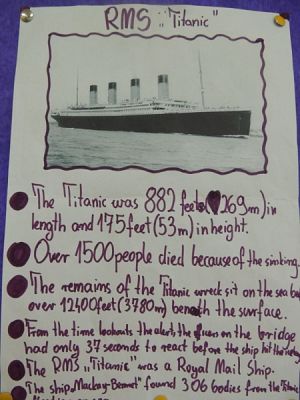 RMS „Titanic"
The Titanic was 882 feet (269m) in
length and 175 feet (53m) in height.
Over 1500 people died because of the sinking.
The remains of the Titanic wreck sit on the sea
over 12400 feet (3780m) beneath the surface.
From the time lookouts the alert, the on the bridge
had only 37 seconds to react before the ship hit the
The RMS „Titanic" was a Royal Mail Ship.
The ship „Mackay-Bennet" found 306 bodies from the